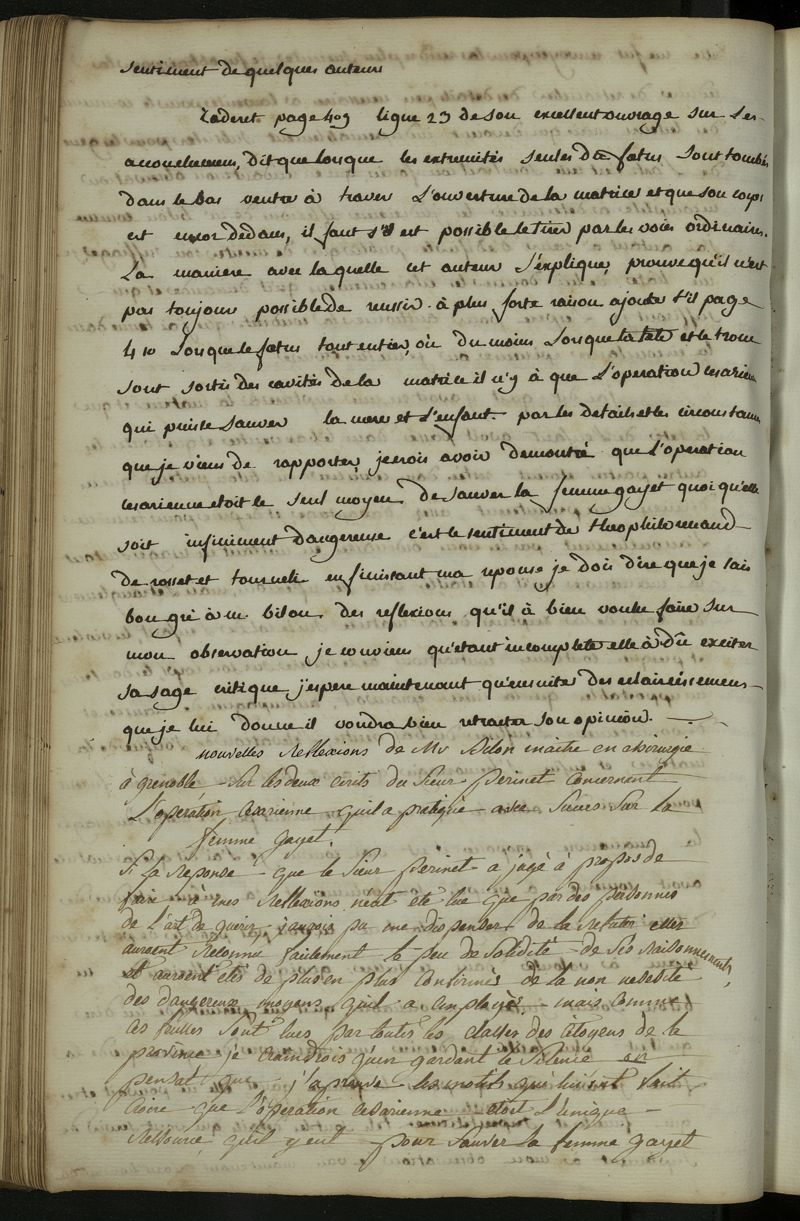 sentiment de quelques auteurs
Laderet page 409 ligne 23 de son excellent ouvrage sur Les
accouchemens, dit que lorsque les extremités seules du fœtus sont tombés
dans le bas ventre à traver L'ouverture de la matrice et que son corps
est encor dedans, il faut s'il est possible le tirer par les voies ordinaires.
La maniere avec laquelle cet auteur s'explique, prouve qu'il n'est
pas toujour possible de reussir à plus forte raison ajoute t'il page
410 Lorsque le fœtus tout entier, où du moins Lorsque la tete et le tronc
sont sortis des cavités de la matrice il n'y à que L'operation cesarienne
qui puisse sauver la mere et L'enfant. par les details et les circonstances
que je viens de rapporter, je crois avoir demontré que L'operation
cesarienne etoit le seul moyen de sauver la femme gayet quoi qu'elle
soit infiniment dangereuse c'est le sentiment de theophile renaud
de rosset et tourneli en finissant ma reponse je dois dire que je sais
bon gré à m. bilon des reflexions qu'il à bien voulu faire sur
mon observation, je conviens qu'etant incomplete elle à dû exciter
sa sage critique j'espere maintenant qu'ensuite des eclaircissemens
que je lui donne il voudra bien retracter son opinion.
nouvelles Reflexions de Mr Bilon maitre en chirurgie
à grenoble sur les deux écrits du Sieur perinet concernant
L'operation cesarienne qu'il a pratiqué avec succes sur la
femme gayet.
Si La Reponse que le Sieur perinet a jugé à propos de
faire à mes Reflexions n'eut été lue que par des personnes
de L'art de guérir j'aurois pu me dispenser de la Refuter elles
auroent Reconnu facilement le peu de Solidité de Ses Raisonnements,
Et auroent étés de plus en plus confirmés de la non necessité
des dangereux moyens qu'il a employés. mais comme
ces feuilles sont lues par toutes les classes des citoyens de la
province je craindrois qu'en gardant le Silence on
pensat que j'aprouve les motifs qui lui ont fait
croire que L'operation cesarienne etoit L'unique
Ressource qu'il y eut pour sauver la femme gayet